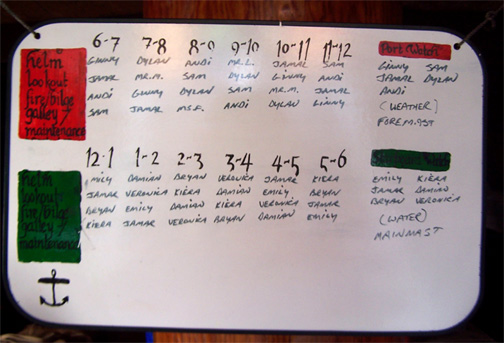 6-7 7-8 8-9 9-10 10-11 11-12 Port Watch
helm Ginny Dylan Andi Mr.L. Jamar Sam Ginny Sam
lookout Jamar Mr.M. Sam Dylan Ginny Andi Jamar Dylan
fire/bilge Andi Ginny Dylan Sam Mr.M. Jamar Andi
galley & Sam Jamar Ms.F. Andi Dylan Ginny (Weather)
maintenance Foremast
12-1 1-2 2-3 3-4 4-5 5-6
helm Emily Damian Bryan Veronica Jamar Kiera Emily Kiera
lookout Jamar Veronica Kiera Damian Emily Bryan Jamar Damian
fire/bilge Bryan Emily Damian Kiera Veronica Jamar Bryan Veronica
galley & Kiera Jamar Veronica Bryan Damian Emily (Water)
maintenance Mainmast